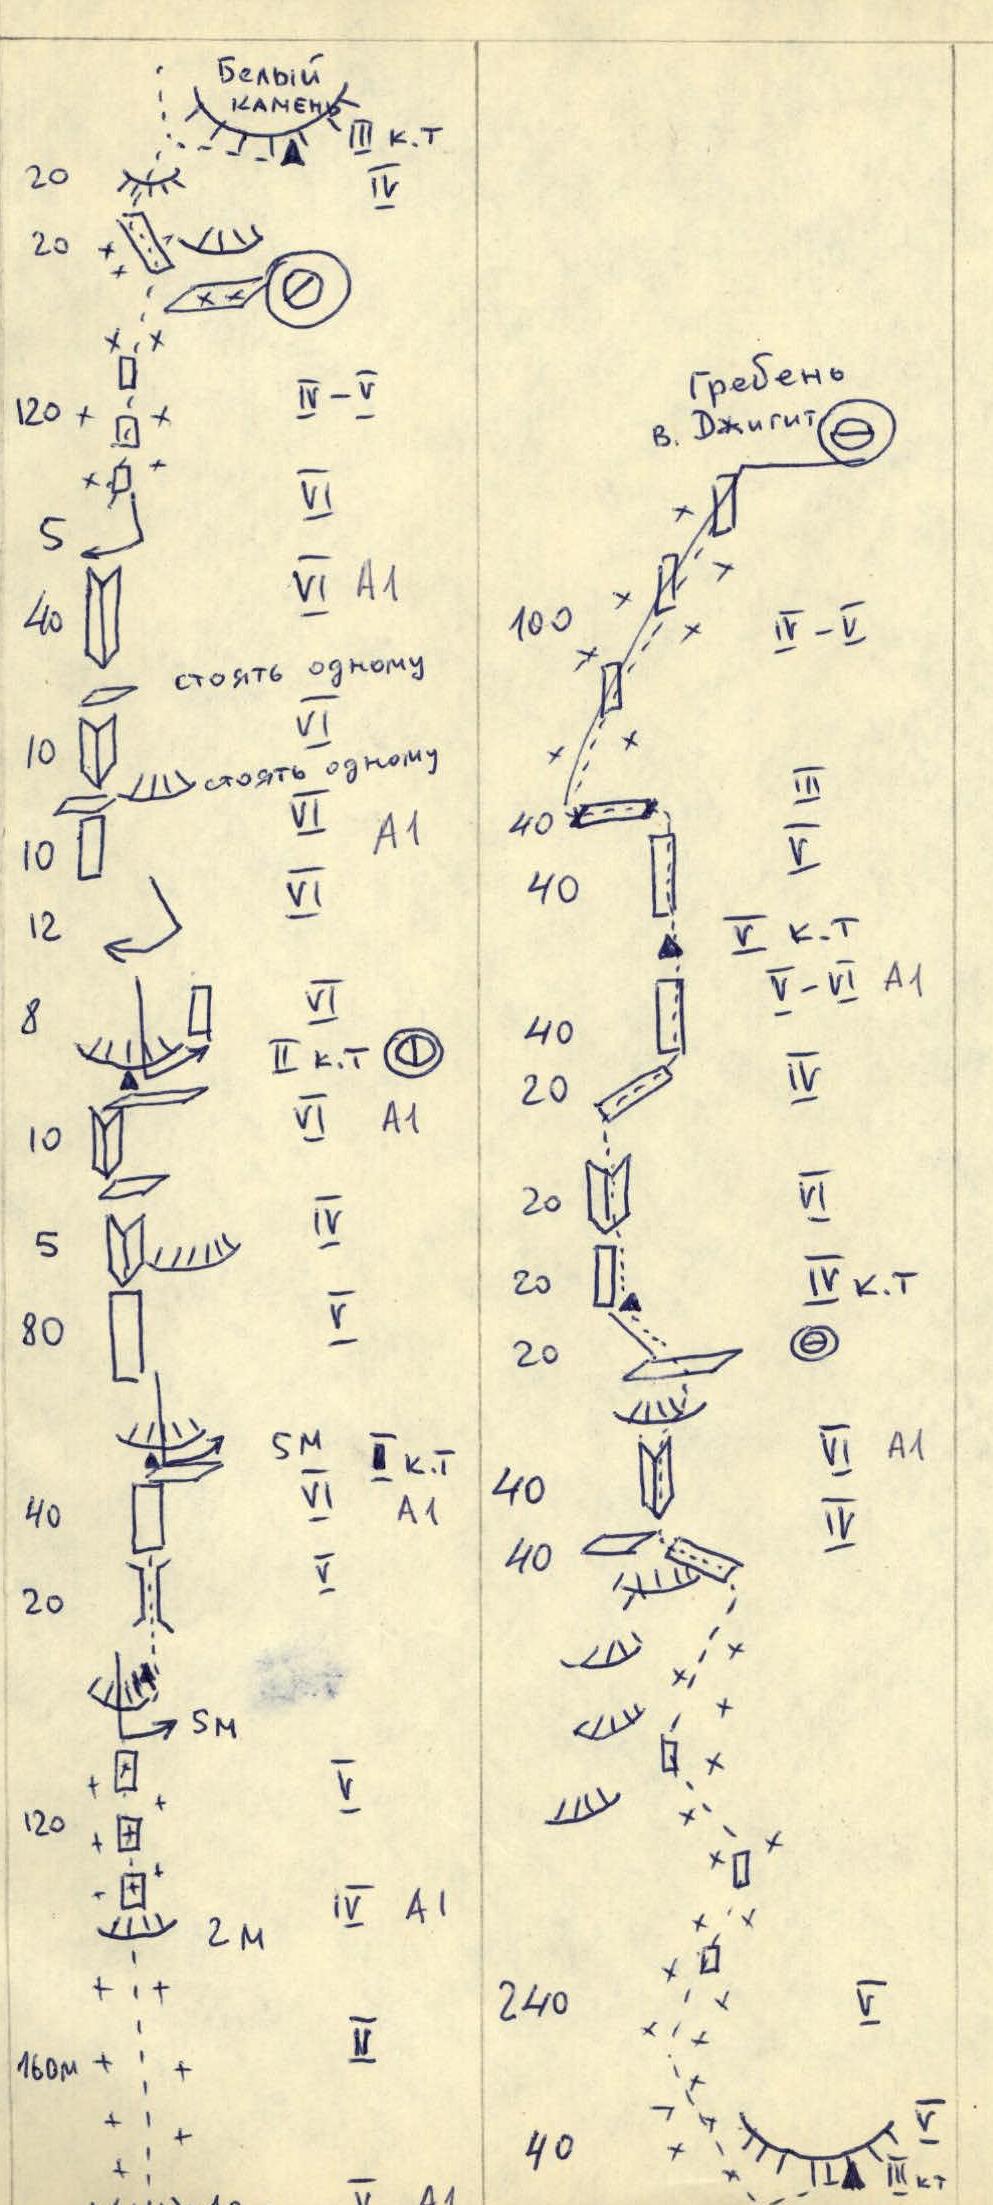 Белый
камень
III к.т
20
IV
20
120
IV-V
VI
5
VI A1
40
стоять одному
VI
10
стоять одному
VI
A1
10
VI
12
8
VI
II к.т
VI
A1
10
IV
5
V
80
5м
I к.т
VI
A1
40
V
20
5м
V
120
IV A1
2м
II
160м
V A1
Гребень
в. Джигит
100
IV-V
III
40
V
40
V к.т
V-VI A1
40
IV
20
VI
20
IV к.т
20
20
VI A1
40
IV
40
240
V
V
40
III кт